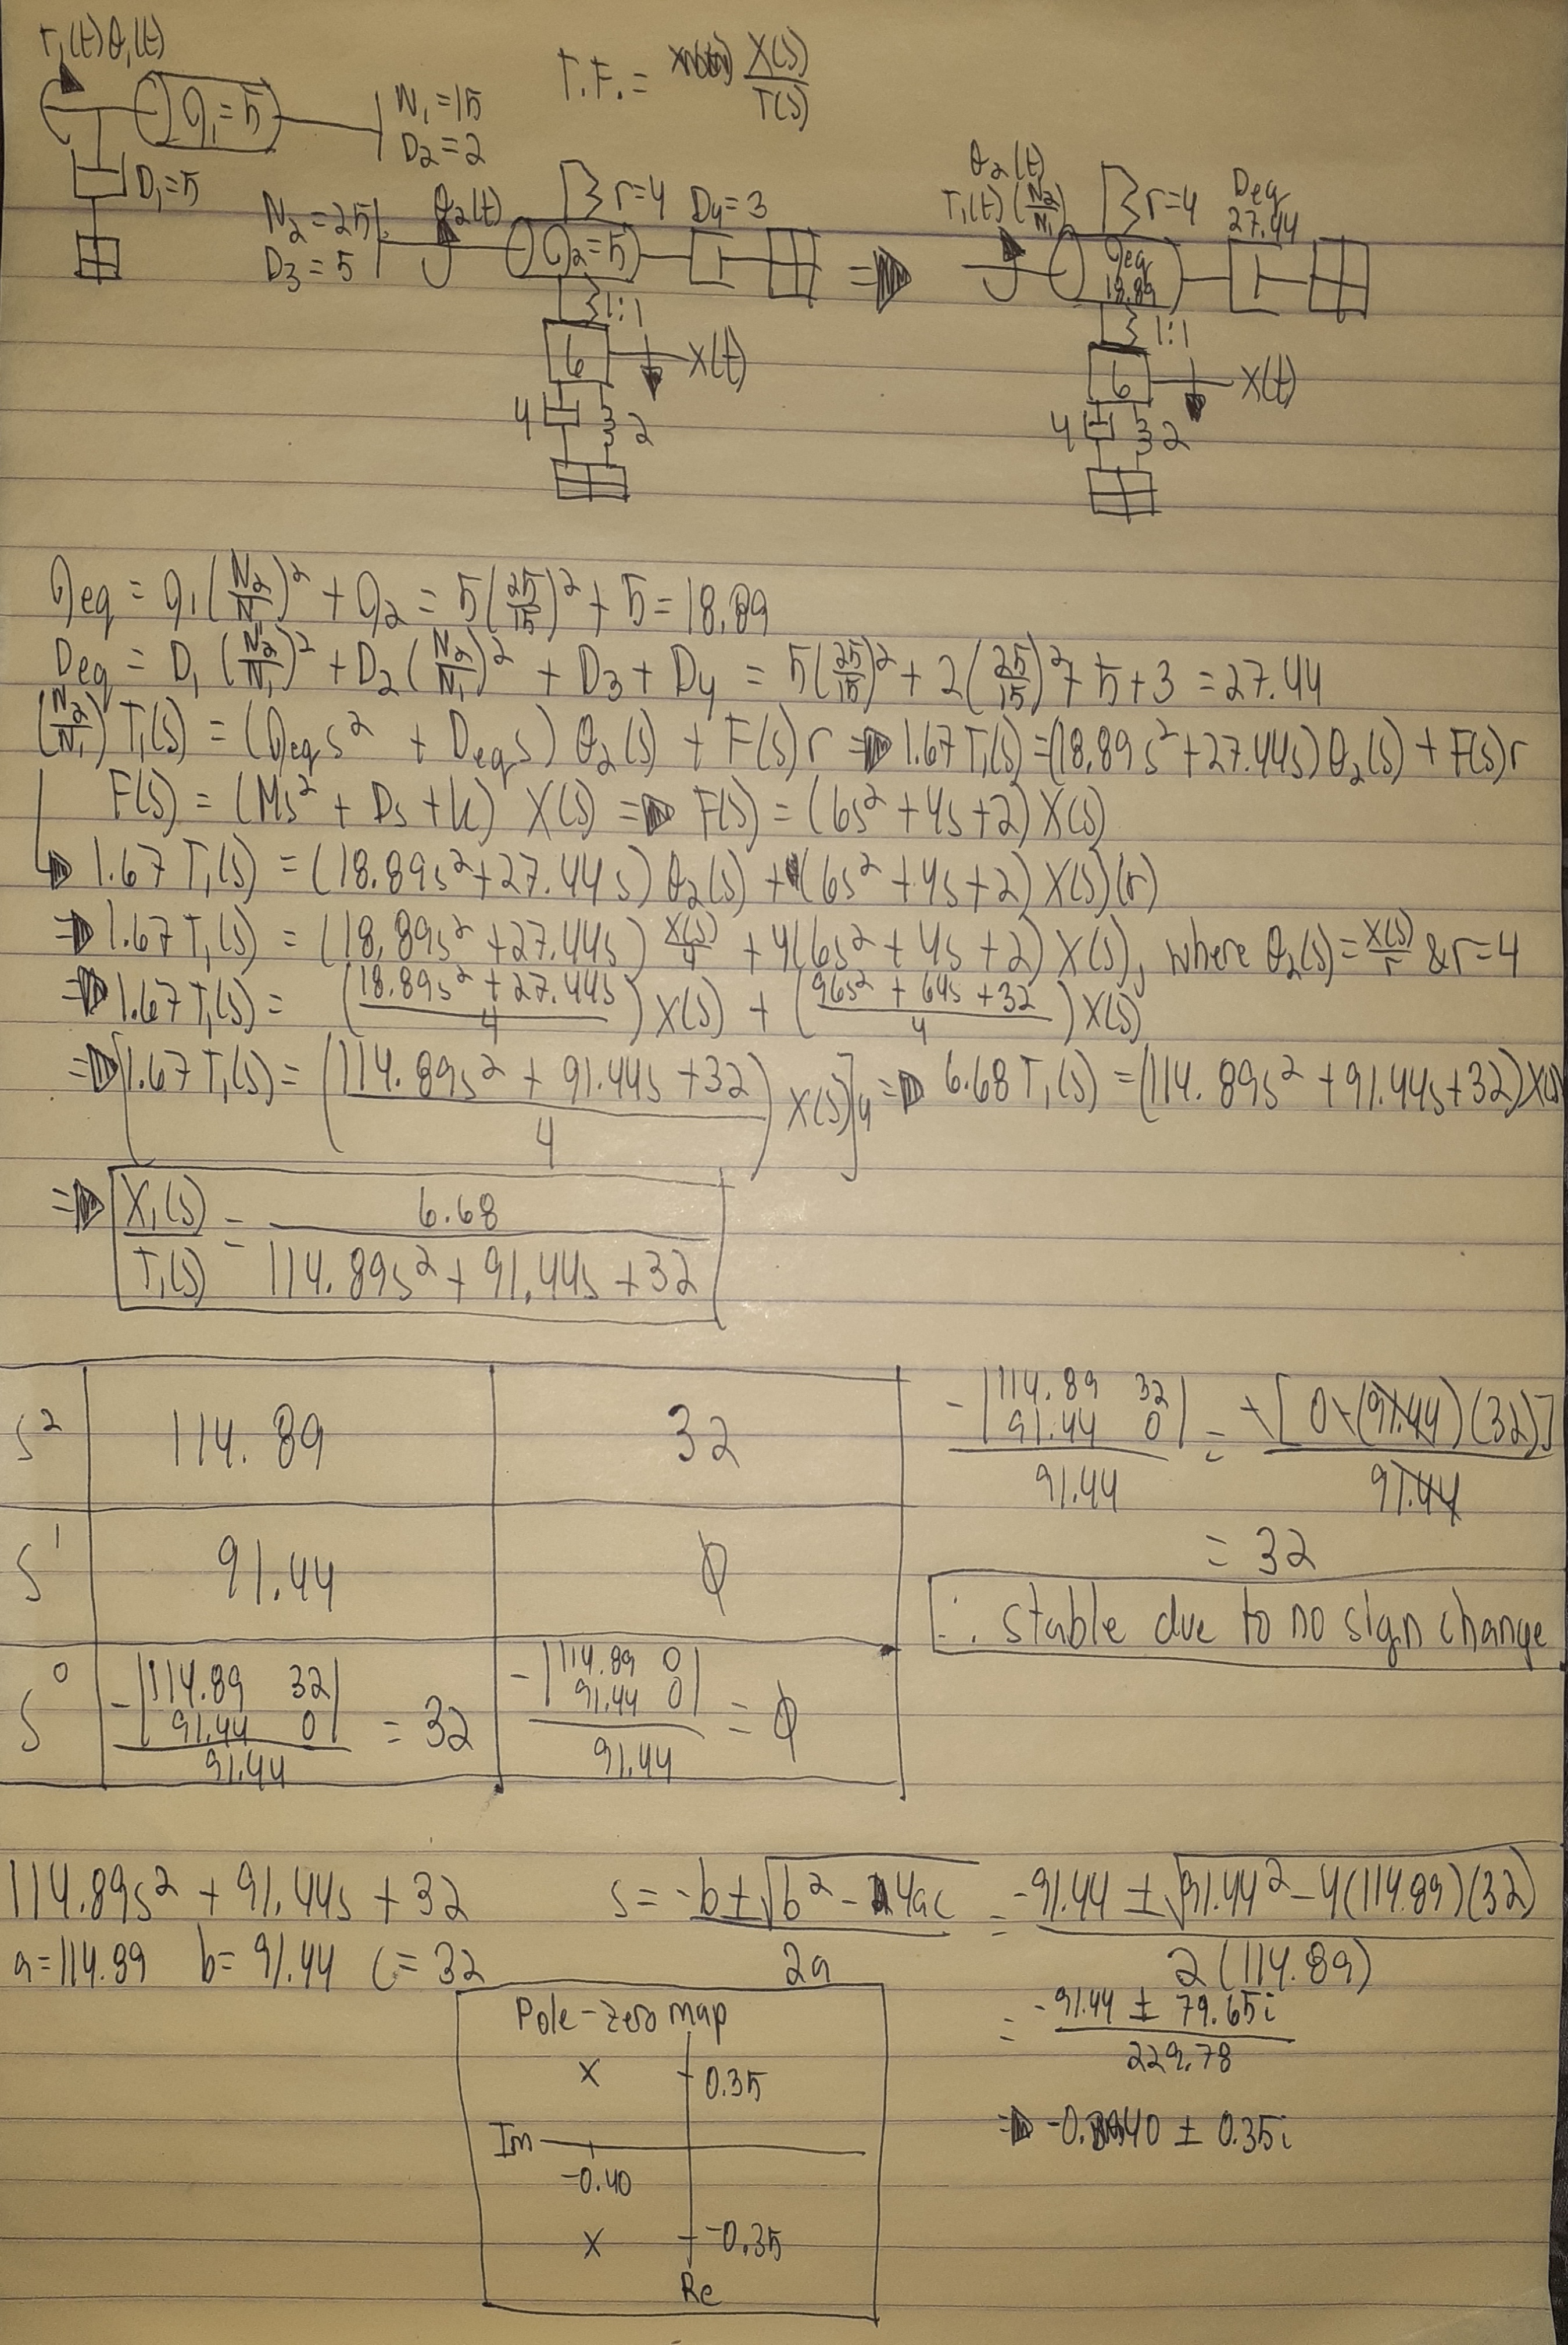 T₁(t) θ₁(t)
J₁=5
N₁=15
D₂=2
D₁=5
T.F. = X(s)/T(s)
N₂=25
D₃=5
θ₂(t)
r=4
J₂=5
D₄=3
1:1
6
X(t)
4
2
θ₂(t)
T₁(t)(N₂/N₁)
r=4
Deq
27.44
Jeq
18.89
1:1
6
X(t)
4
2
Jeq = J₁(N₂/N₁)² + J₂ = 5(25/15)² + 5 = 18.89
Deq = D₁(N₂/N₁)² + D₂(N₂/N₁)² + D₃ + D₄ = 5(25/15)² + 2(25/15)² + 5 + 3 = 27.44
(N₂/N₁) T₁(s) = (Jeq s² + Deq s) θ₂(s) + F(s)r ⇒ 1.67 T₁(s) = (18.89s² + 27.44s) θ₂(s) + F(s)r
F(s) = (Ms² + Ds + K) X(s) ⇒ F(s) = (6s² + 4s + 2) X(s)
↳ 1.67 T₁(s) = (18.89s² + 27.44s) θ₂(s) + (6s² + 4s + 2) X(s)(r)
⇒ 1.67 T₁(s) = (18.89s² + 27.44s) X(s)/4 + 4(6s² + 4s + 2) X(s), where θ₂(s) = X(s)/r & r=4
⇒ 1.67 T₁(s) = ((18.89s² + 27.44s)/4) X(s) + ((96s² + 64s + 32)/4) X(s)
⇒ [1.67 T₁(s) = ((114.89s² + 91.44s + 32)/4) X(s)]4 ⇒ 6.68 T₁(s) = (114.89s² + 91.44s + 32) X(s)
⇒ X₁(s)/T₁(s) = 6.68/(114.89s² + 91.44s + 32)
s² 114.89 32
s¹ 91.44 0
s⁰ -|114.89 32; 91.44 0|/91.44 = 32 -|114.89 0; 91.44 0|/91.44 = 0
-|114.89 32; 91.44 0|/91.44 = +[0+(91.44)(32)]/91.44
= 32
∴ stable due to no sign change
114.89s² + 91.44s + 32
a=114.89 b=91.44 c=32
s = (-b ± √(b² - 4ac))/2a = (-91.44 ± √(91.44² - 4(114.89)(32)))/2(114.89)
= (-91.44 ± 79.65i)/229.78
⇒ -0.40 ± 0.35i
Pole-zero map
x 0.35
Im
-0.40
x -0.35
Re